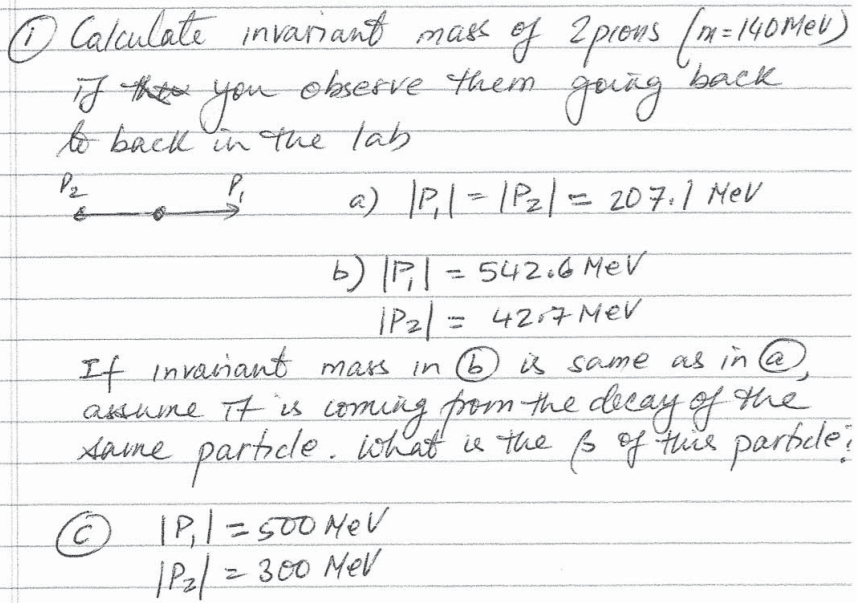 ① Calculate invariant mass of 2 pions (m=140 MeV)
if you observe them going back
to back in the lab
P₂ P₁ a) |P₁| = |P₂| = 207.1 MeV
b) |P₁| = 542.6 MeV
|P₂| = 42.7 MeV
If invariant mass in ⓑ is same as in ⓐ,
assume it is coming from the decay of the
same particle. What is the β of this particle?
ⓒ |P₁| = 500 MeV
|P₂| = 300 MeV